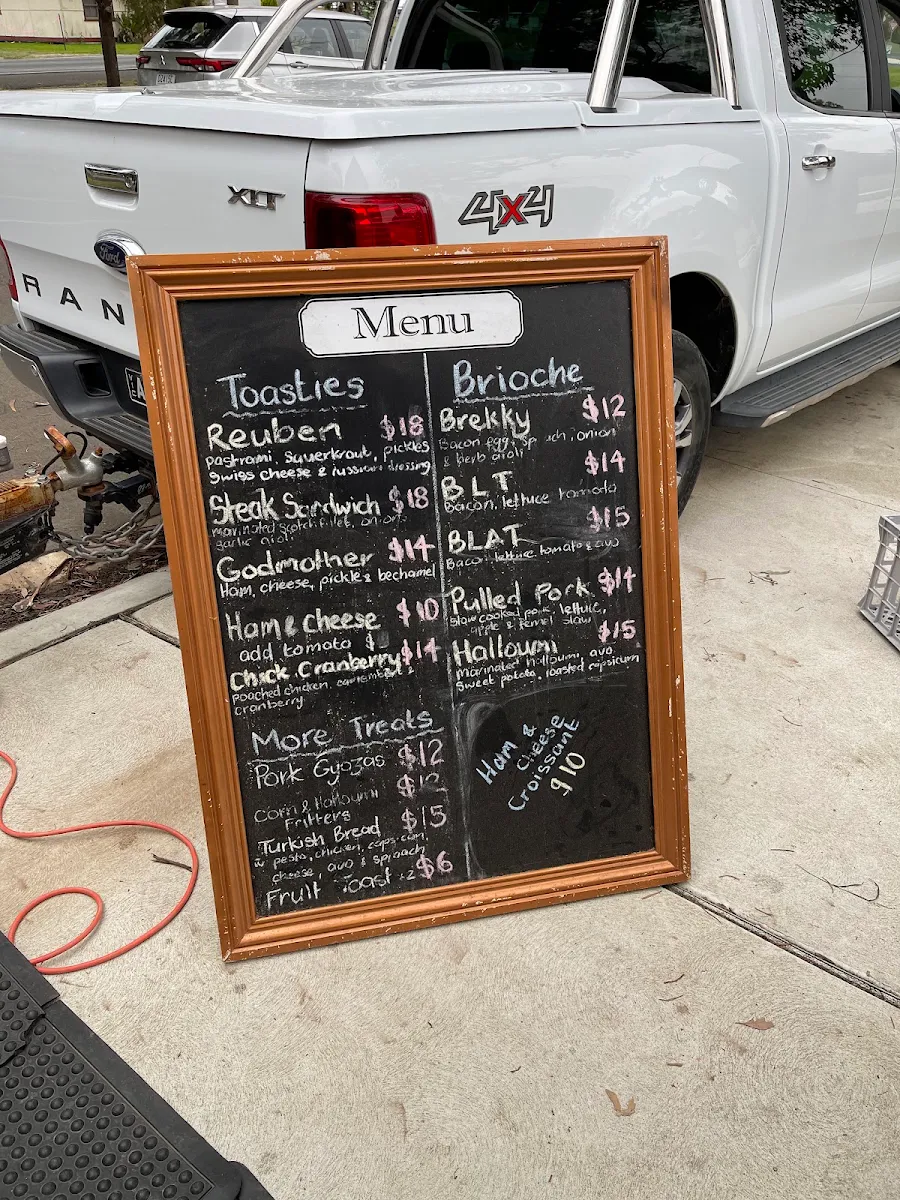 XLT
4x4
Ford
RAN
Menu
Toasties
Reuben $18
pastrami, sauerkraut, pickles
Swiss cheese & russian dressing
Steak Sandwich $18
marinated scotch fillet, onion,
garlic aioli
Godmother $14
Ham, cheese, pickle & bechamel
Ham & Cheese $10
add tomato $
Chick. Cranberry $14
poached chicken,
cranberry
More Treats
Pork Gyozas $12
Corn & Halloumi $12
Fritters
Turkish Bread $15
w pesto, chicken, capsicum,
cheese, avo & spinach
Fruit Toast x2 $6
Brioche
Brekky $12
Bacon egg, onion
& herb aioli
BLT $14
Bacon, lettuce tomado
BLAT $15
Bacon lettuce tomato & avo
Pulled Pork $14
slow cooked pork, lettuce,
apple & fennel slaw
Halloumi $15
Marinated halloumi, avo,
Sweet potato, roasted capsicum
Ham &
Cheese
Croissant
$10